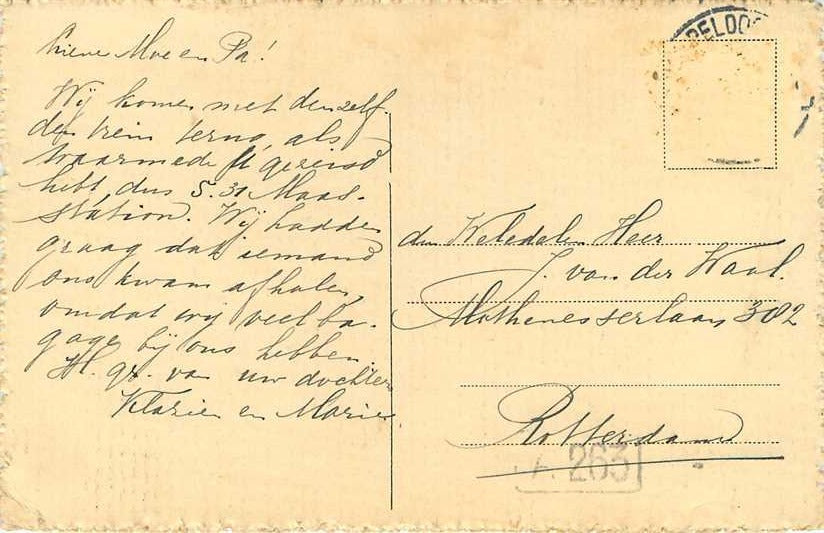 Lieve Moe en Pa!
Wij komen met denzelf-
den trein terug, als
waarmede U gereisd
hebt, dus 5.31 Maas-
station. Wij hadden
graag dat iemand
ons kwam afhalen,
omdat wij veel ba-
gage bij ons hebben.
H. gr. van uw dochters
en Marie.
den Weledelen Heer
J. van der Waal.
Mathenesserlaan 302
Rotterdam
263
PELDO